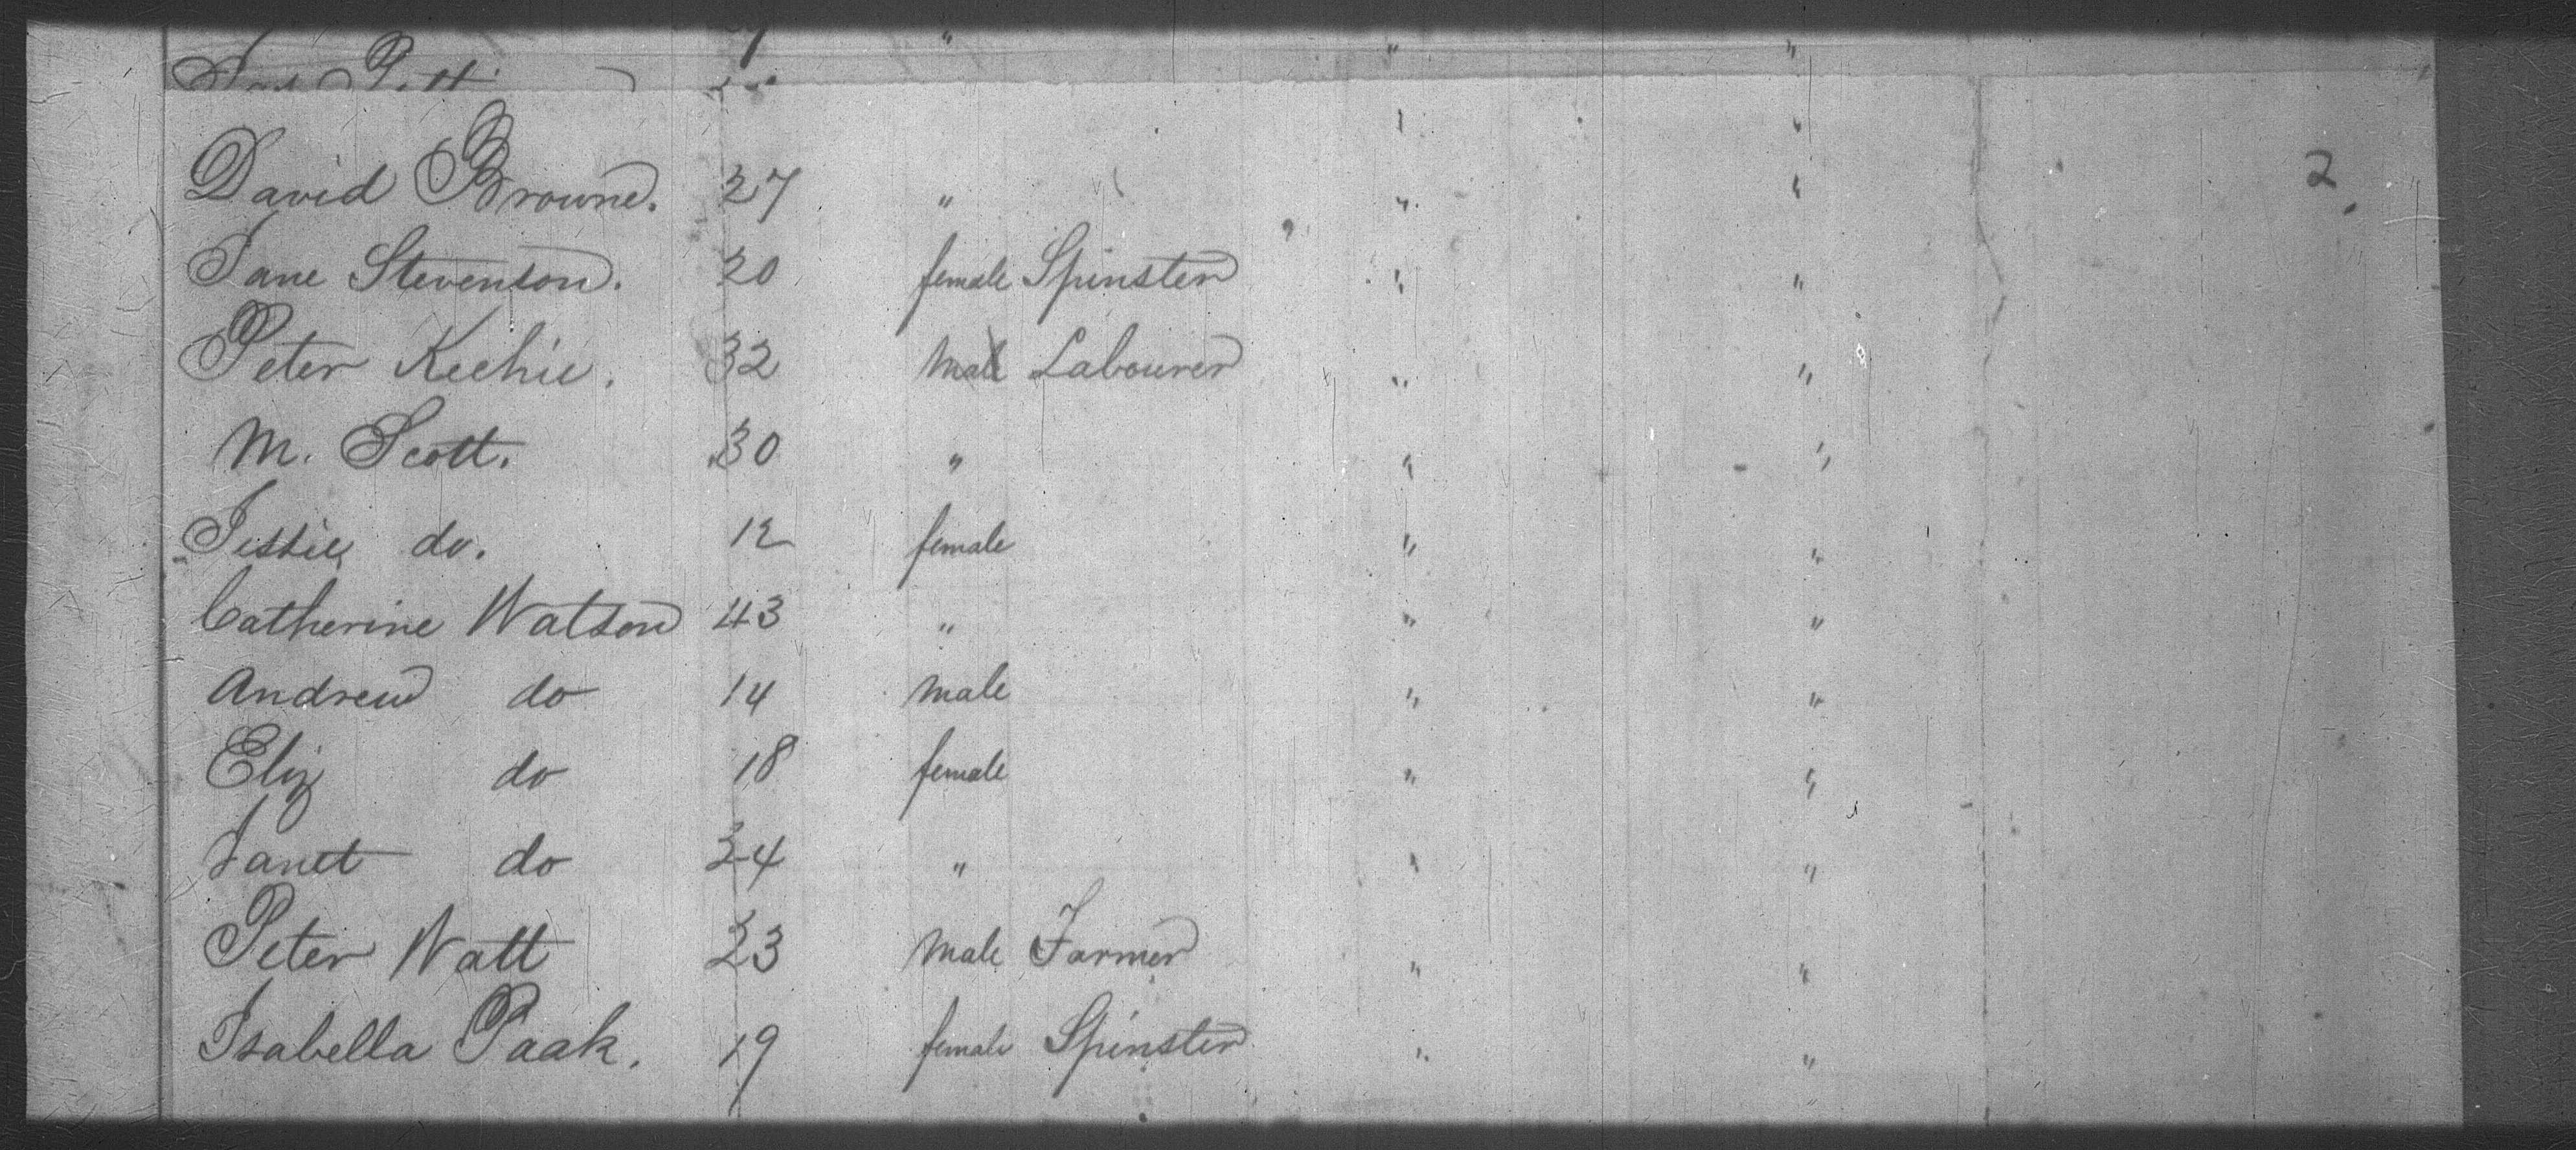 " " "
" "
David Browne. 27 " " " 2
Jane Stevenson. 20 female Spinster " "
Peter Kechie. 32 male Labourer " "
M. Scott. 30 " " "
Jessie do. 12 female " "
Catherine Watson 43 " " "
Andrew do 14 male " "
Eliz do 18 female " "
Janet do 24 " " "
Peter Watt 23 male Farmer " "
Isabella Paak. 19 female Spinster " "